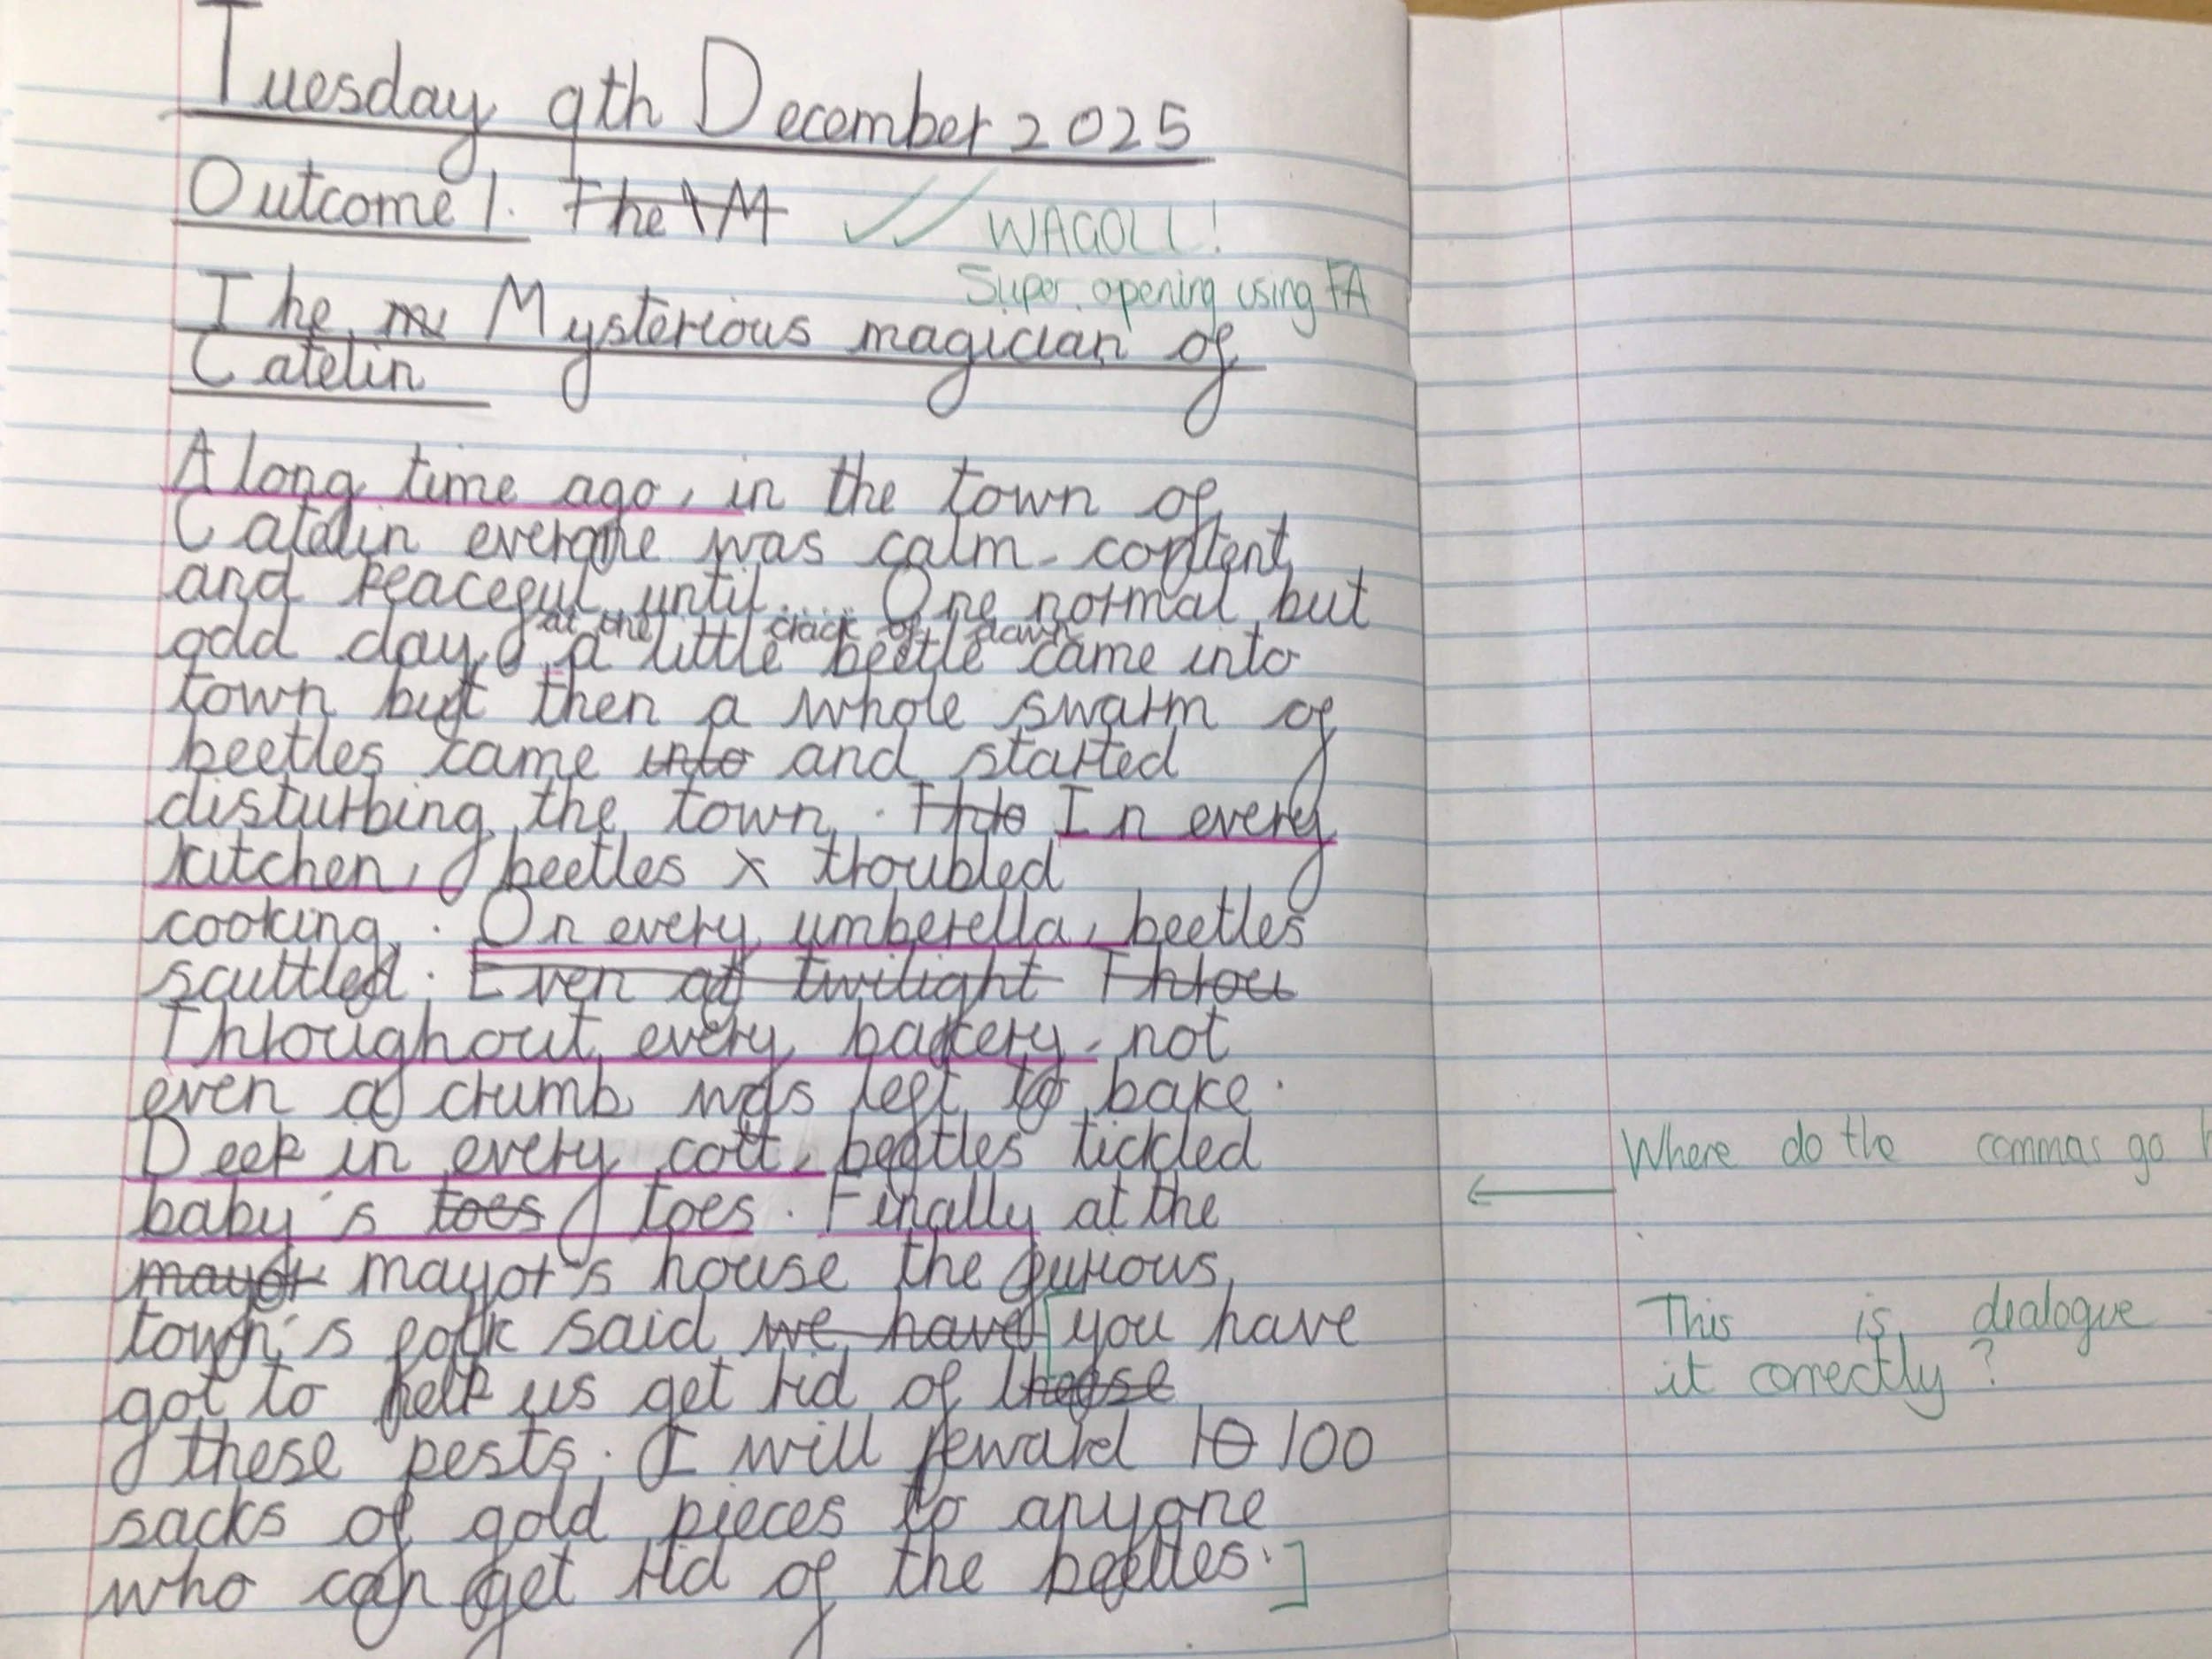 Tuesday 9th December 2025
Outcome 1. The M
WAGOLL!
Super opening using FA
The m Mysterious magician of
Catelin
A long time ago, in the town of
Catelin everyone was calm, content
and peaceful until.... One normal but
at the crack of dawn
odd day, a little beetle came into
town but then a whole swarm of
beetles came into and started
disturbing the town. Thro In every
kitchen, beetles x troubled
cooking. On every umberella, beetles
scuttled. Even at twilight Throu
Throughout every bakery, not
even a crumb was left to bake.
Deep in every cott, beetles tickled
baby's toes toes. Finally at the
mayor mayor's house the furious
town's folk said we have you have
got to help us get rid of these
these pests. I will reward 10 100
sacks of gold pieces to anyone
who can get rid of the beetles.
Where do the commas go
This is dialogue
it correctly?